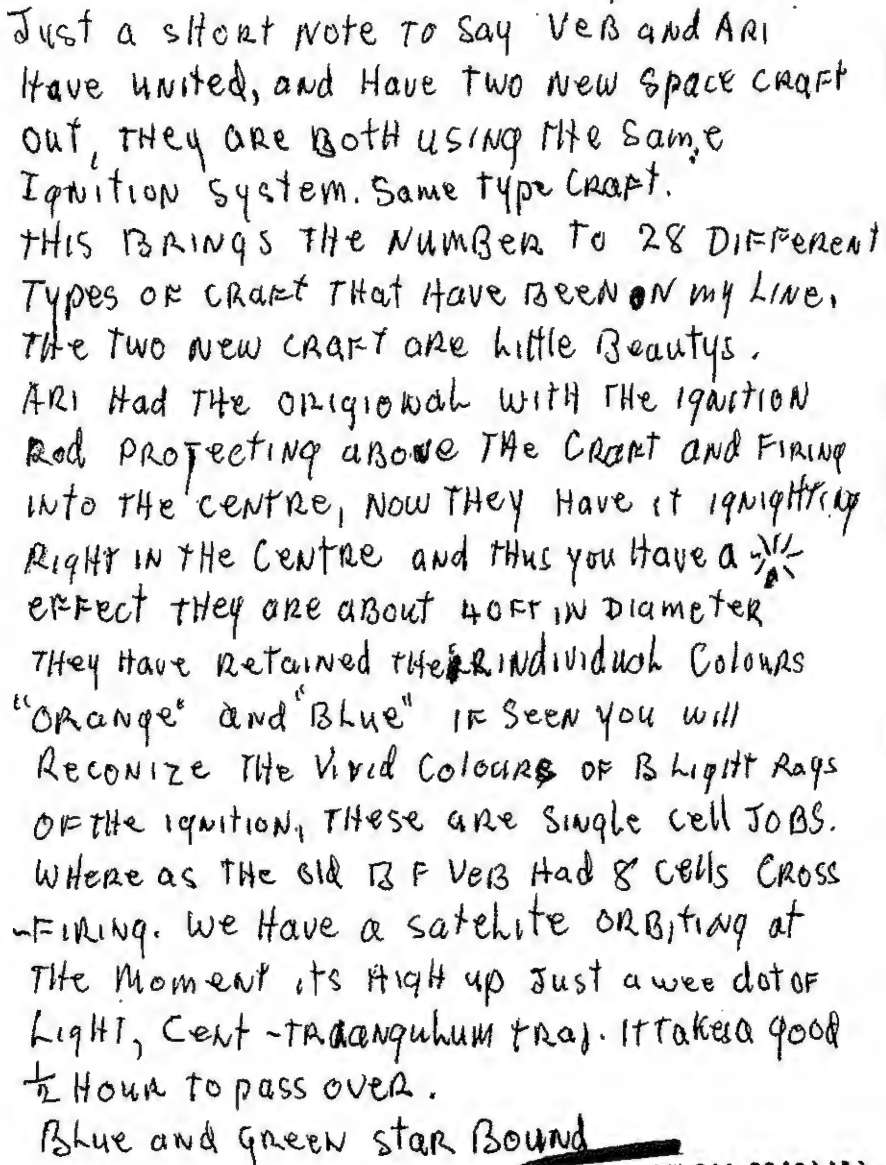 Just a short note to say VeB and ARI
Have united, and Have two new space craft
out, they are Both using the same
Ignition system. Same type craft.
This Brings the number to 28 Different
Types of craft that Have Been on my Line.
The two new craft are little Beautys.
ARI Had the origional with the ignition
Rod projecting above the craft and Firing
into the centre, now they Have it ignighting
Right in the Centre and thus you Have a
effect they are about 40 FT in Diameter
They Have retained their individual Colours
"Orange" and "Blue" if seen you will
Reconize the vivid Colours of B Light Rays
of the ignition, these are single cell Jobs.
Where as the old B F VeB Had 8 cells Cross
-Firing. We Have a satelite orbiting at
the moment its High up Just a wee dot of
Light, Cent - traj. It takes a good
½ Hour to pass over.
Blue and Green star Bound